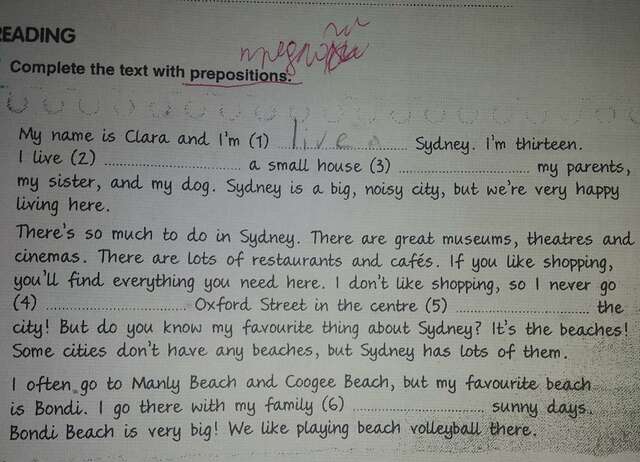 READING
предлоги
Complete the text with prepositions.
My name is Clara and I'm (1) lives Sydney. I'm thirteen.
I live (2) .............................. a small house (3) .............................. my parents,
my sister, and my dog. Sydney is a big, noisy city, but we're very happy
living here.
There's so much to do in Sydney. There are great museums, theatres and
cinemas. There are lots of restaurants and cafés. If you like shopping,
you'll find everything you need here. I don't like shopping, so I never go
(4) .............................. Oxford Street in the centre (5) .............................. the
city! But do you know my favourite thing about Sydney? It's the beaches!
Some cities don't have any beaches, but Sydney has lots of them.
I often go to Manly Beach and Coogee Beach, but my favourite beach
is Bondi. I go there with my family (6) .............................. sunny days.
Bondi Beach is very big! We like playing beach volleyball there.